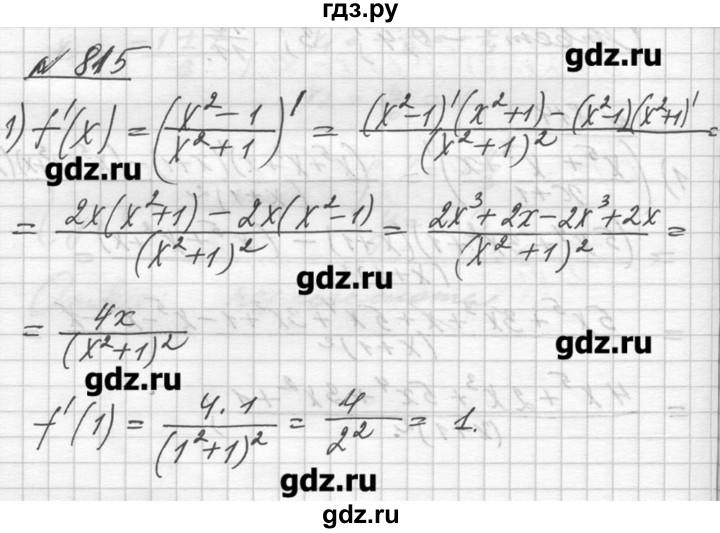 гдз.ру
№ 815
gdz.ru
1) f'(x) = ((x²-1)/(x²+1))' = ((x²-1)'(x²+1) - (x²-1)(x²+1)')/(x²+1)² =
gdz.ru
= (2x(x²+1) - 2x(x²-1))/(x²+1)² = (2x³+2x-2x³+2x)/(x²+1)² =
gdz.ru
= 4x/(x²+1)²
gdz.ru
gdz.ru
f'(1) = (4·1)/(1²+1)² = 4/2² = 1.
gdz.ru
gdz.ru